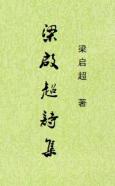 梁啟超詩集
梁启超 著